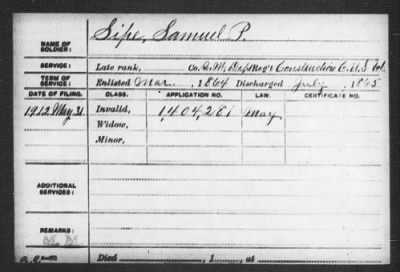 NAME OF SOLDIER: Sipe, Samuel P.
SERVICE: Late rank, Co. Q.M. Dep Reg't Construction C. U.S. Vol.
TERM OF SERVICE: Enlisted Mar. , 1864 Discharged July , 1865
DATE OF FILING. CLASS. APPLICATION NO. LAW. CERTIFICATE NO.
1912 May 31 Invalid, 1,404,281 May
Widow,
Minor,
ADDITIONAL SERVICES:
REMARKS:
Died , 1 , at